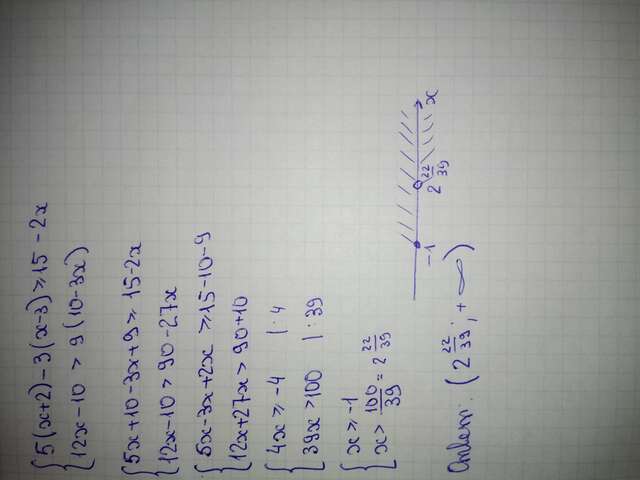 { 5(x+2)-3(x-3) ≥ 15 - 2x
12x-10 > 9(10-3x)
{ 5x+10-3x+9 ≥ 15-2x
12x-10 > 90-27x
{ 5x-3x+2x ≥ 15-10-9
12x+27x > 90+10
{ 4x ≥ -4 | : 4
39x > 100 | : 39
{ x ≥ -1
x > 100/39 = 2 22/39
-1 2 22/39 x
Ответ: (2 22/39; +∞)